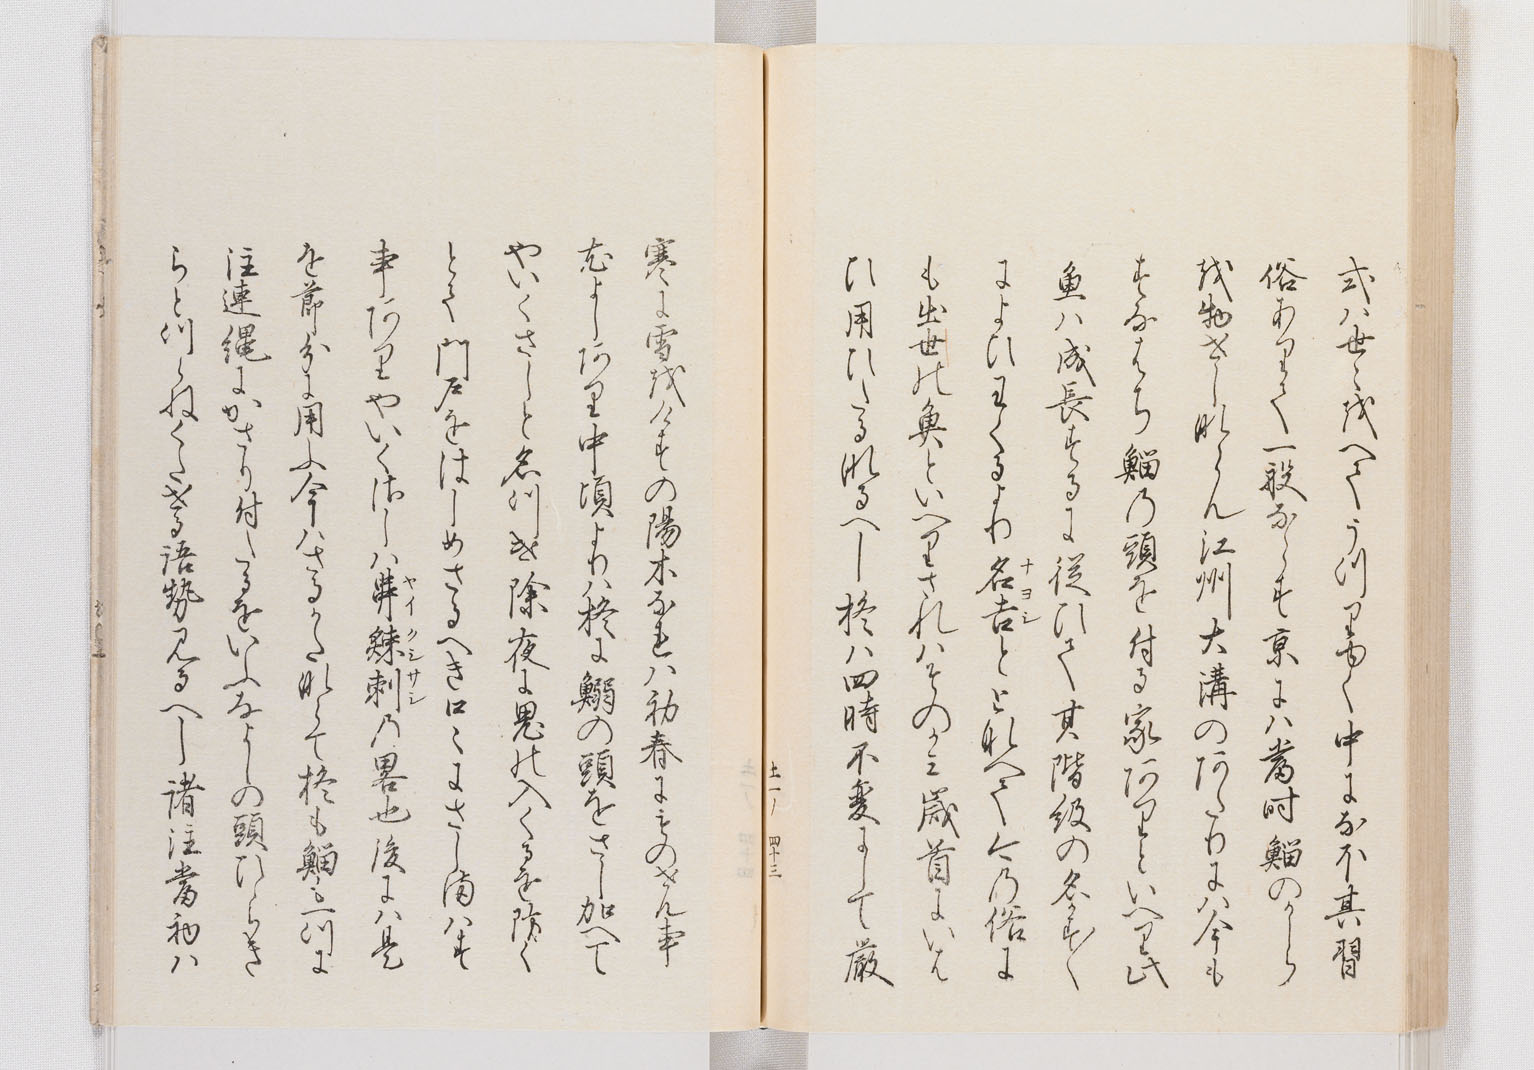 式ハ世々越へてうつりゆく中になほ其習
俗ありて一般ならす京にハ当時鯔のかしら
越物せし那らん江州大溝のわたりにハ今も
すなはち鯔の頭を付る家ありといへり此
魚ハ成長するに従ひて其階級の名多く
によひわくるより名吉ととなへて今の俗に
ナヨシ
も出世の魚といへりされハその上歳首にいは
ひ用ひたるなるへし柊ハ四時不変にして厳
寒に雪越人すの陽木なれハ初春にものせん事
故よしあり中頃よりハ柊に鰯の頭をさし加へて
やいくさしと名つけ除夜に鬼の入くるを防く
とて門戸をはしめさるへき口々にさし満ハす
事ありやいくさしハ
ヤイクシサシ
刺の畧也後にハ是
を節分に用ふ今ハさるかたなくて柊も鯔も一つに
注連縄にかさり付たるをいふなよしの頭ひらき
らとつらねくたせる語勢見るへし諸注当初ハ
土一ノ 四十三